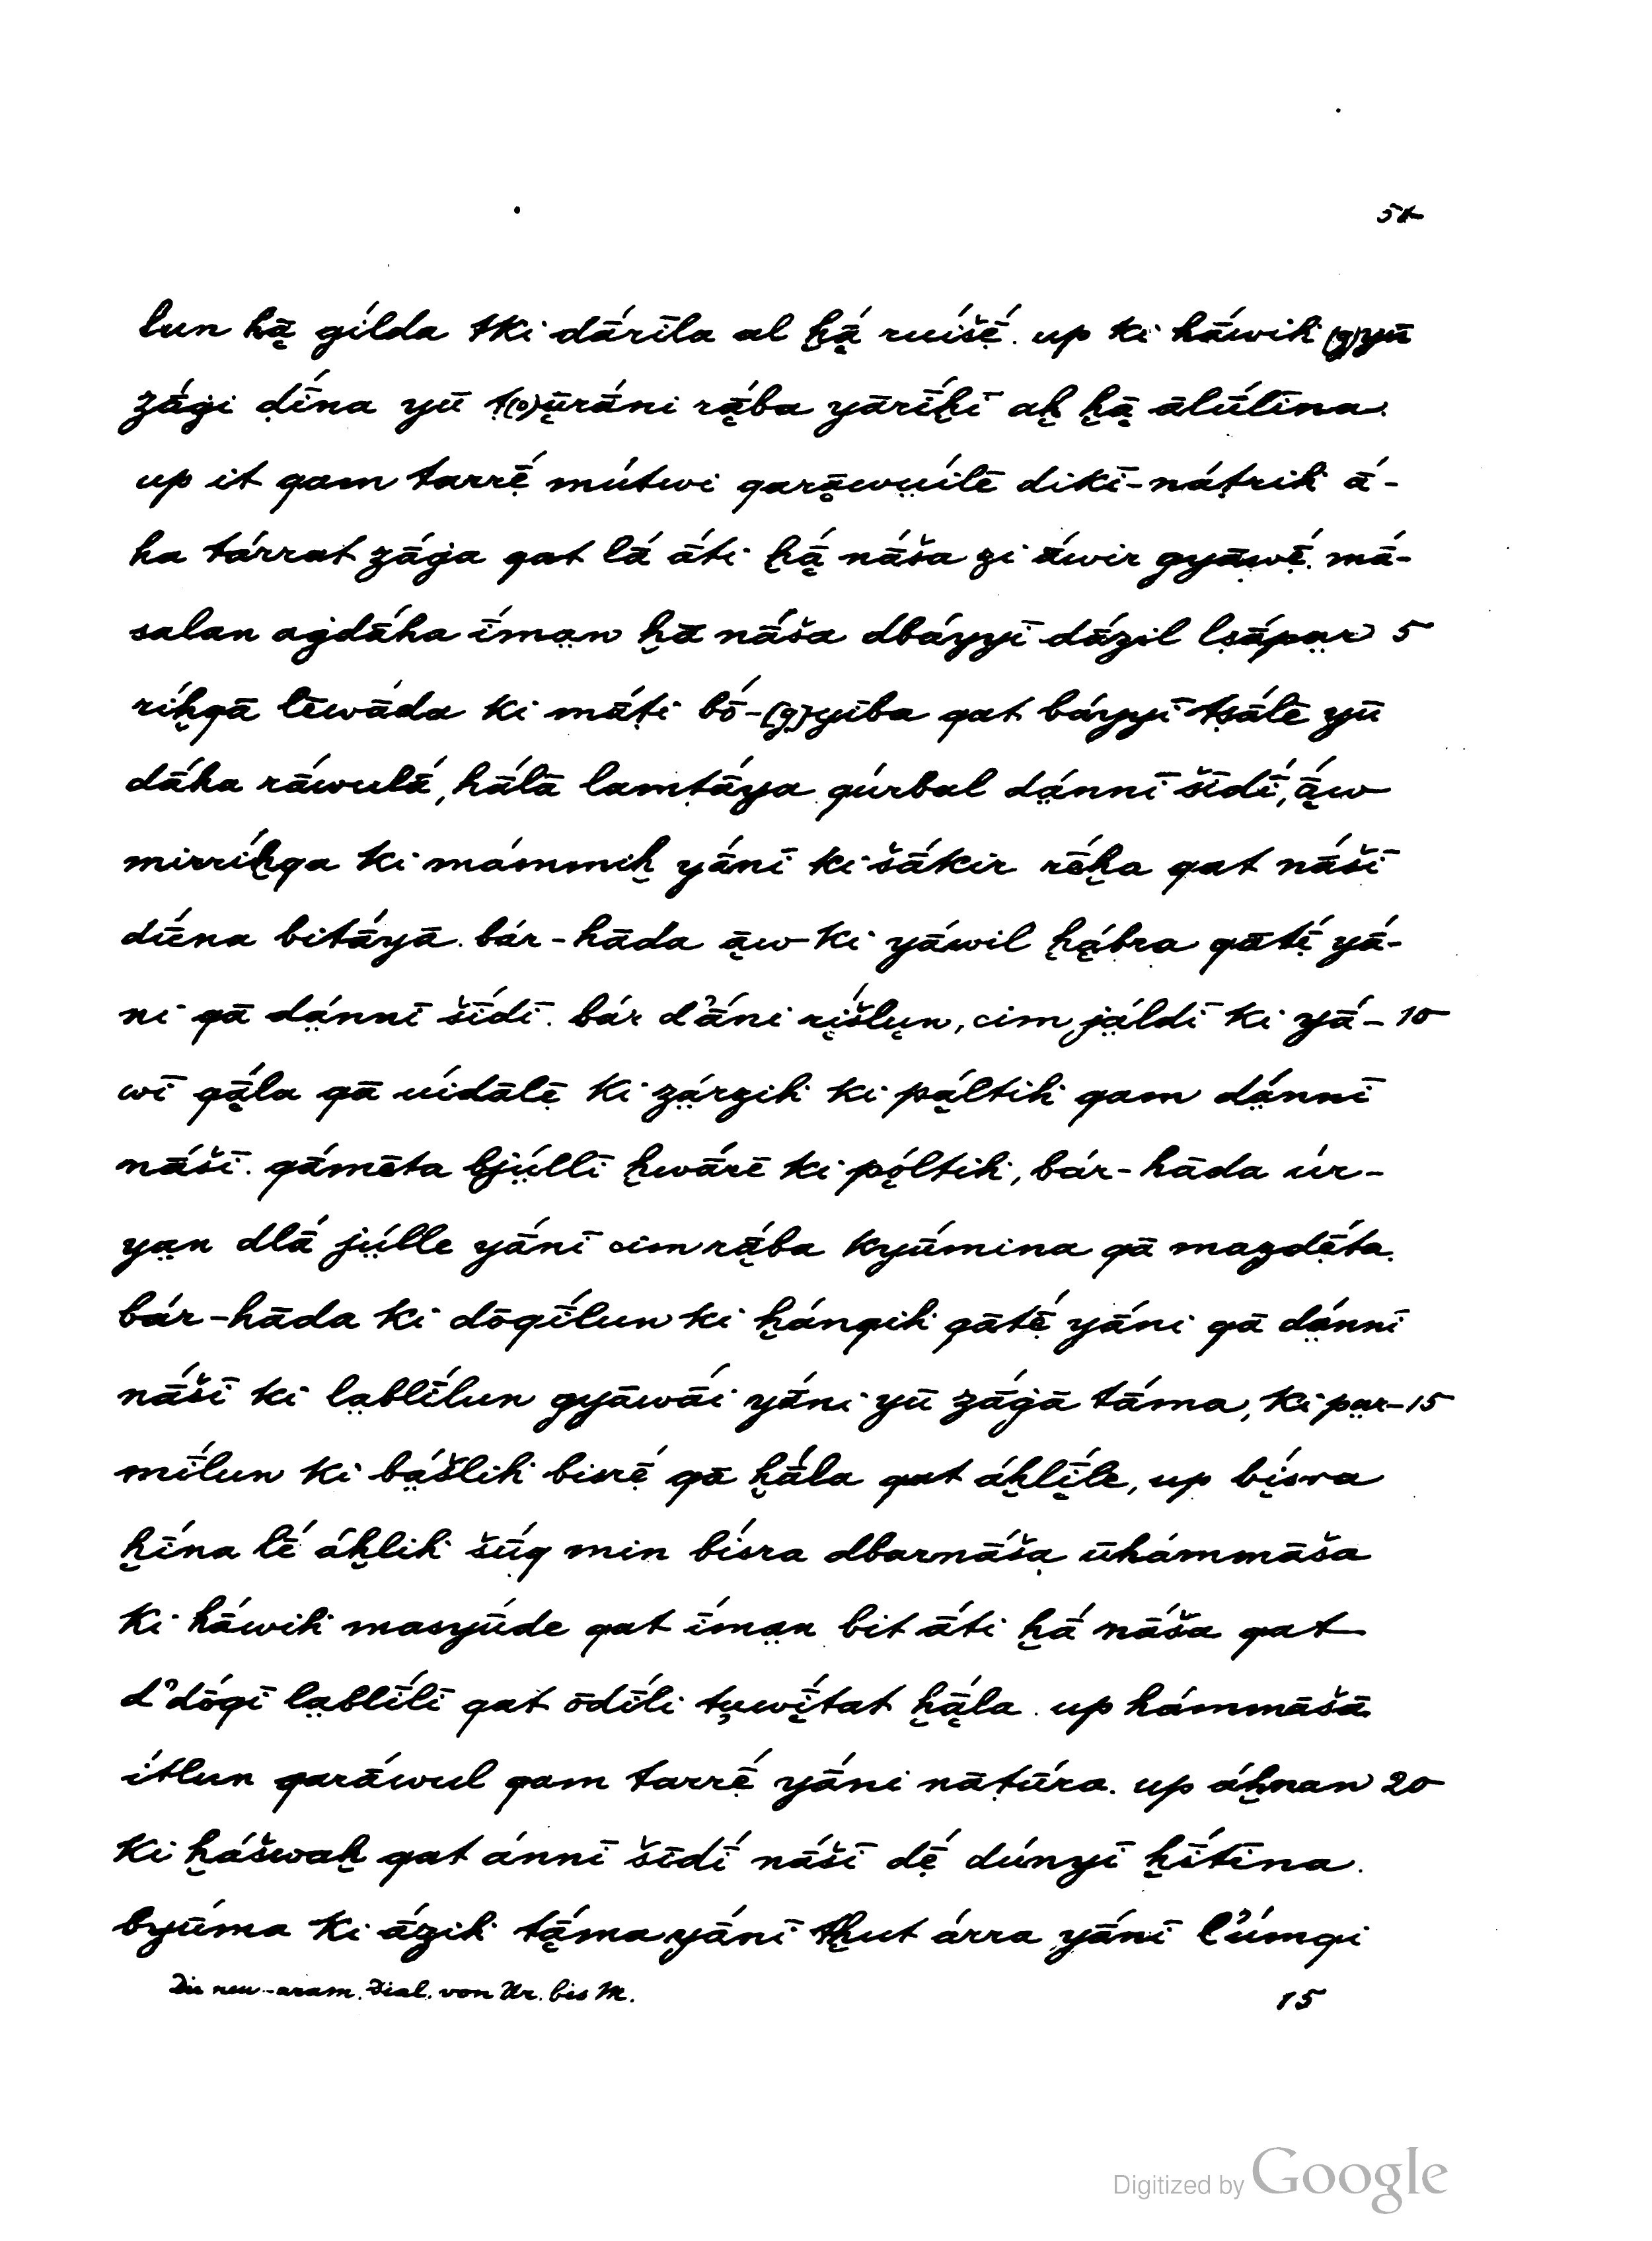 57
lun ḫā̤ gílda tki dārīla al ḫā̤́ ruíšẹ̄́. up ki hā́wih (g)yū
zā́gi dī́na yū ṭ(o)ṳ̄rā́ni rā̤́ba yārī́ḫī aḫ ḫā̤ ālúlīna.
up it qam tarrẹ̄́ mútwi qarā̤wṳílē dikī-nā́ṭrih ā́-
ha tárrat zā́ġa qat lā́ ā́ti ḫā̤́ nā́ša zi ā́wir gyāwẹ̄́. mā́-
salan aġdā́ha ī́ma̤n ḫā nā́ša dbáyyī dā́zil lsā́pa̤r 5
ríḫqā lēwā́da ki mā́ṭi bō-(g)yība qat báyyī tṣā́lē yū
dā́ha rā́wulā́, hā́lā lamṭā́ya qúrbal dá̤nnī šīdī́, ā̤́w
mirríḫqa ki mámmiḫ yā́nī ki šā́kir rēḫa qat nā́šī
díēna bitā́yā. bár-hāda ā̤w ki yā́wil ḫá̤bra qātẹ̄́ yā́-
ni qā dá̤nnī šī́dī. bár d'ā́ni ri̤šlṳn, cim já̤ldī ki yā́- 10
wī qā̤́la qā uídālẹ̄ ki zá̤rzih ki pá̤ltih qam dá̤nnī
nā́šī. qámēta bjṳ́llī ḫwā́rē ki pó̤ltih, bár-hāda úr-
ya̤n dlā́ jṳ́lle yā́nī cim rā̤́ba kyūmina qā mazdẹ̄́ta.
bár-hāda ki dōqī́lun ki ḫánqih qātẹ̄́ yā́ni qā dá̤nnī
nā́šī ki la̤blī́lun gyāwā́i yā́ni yū zā́ġā tā́ma, ki pa̤r- 15
mī́lun ki bá̤šlih bisrẹ̄́ qā ḫā̤́la qat áḫlī̤́le, up bí̤sra
ḫī́na lē áḫlih šū́q min bísra dbarnā́ša̤ ūhámmāša
ki hā́wih masyū́de qat ī́ma̤n bit ā́ti ḫā́ nā́ša qat
d'dṓqī la̤blī́lī qat ōdī́li tṳwī̤́tat ḫā̤́la. up hámmāšā
ítlun qarā́wul qam tarrẹ̄́ yā́ni nāṭū́ra. up áḫnan 20
ki ḫášwaḫ qat ánnī šīdī́ nā́šī dẹ̄́ dúnyī ḫī́tīna.
byū́ma ki ā́zih tā̤́ma yā́nī tḫut árra yā́nī l'úmqi
Die neu-aram. Dial. von Ur. bis M.
15
Digitized by Google